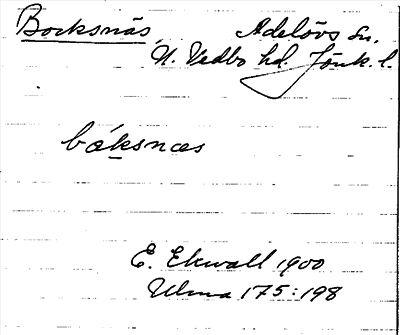 Bocksnäs, Adelövs sn.
N. Vedbo hd. Jönk. l.
båksnæs
E. Ekwall 1900
Ulma 175:198